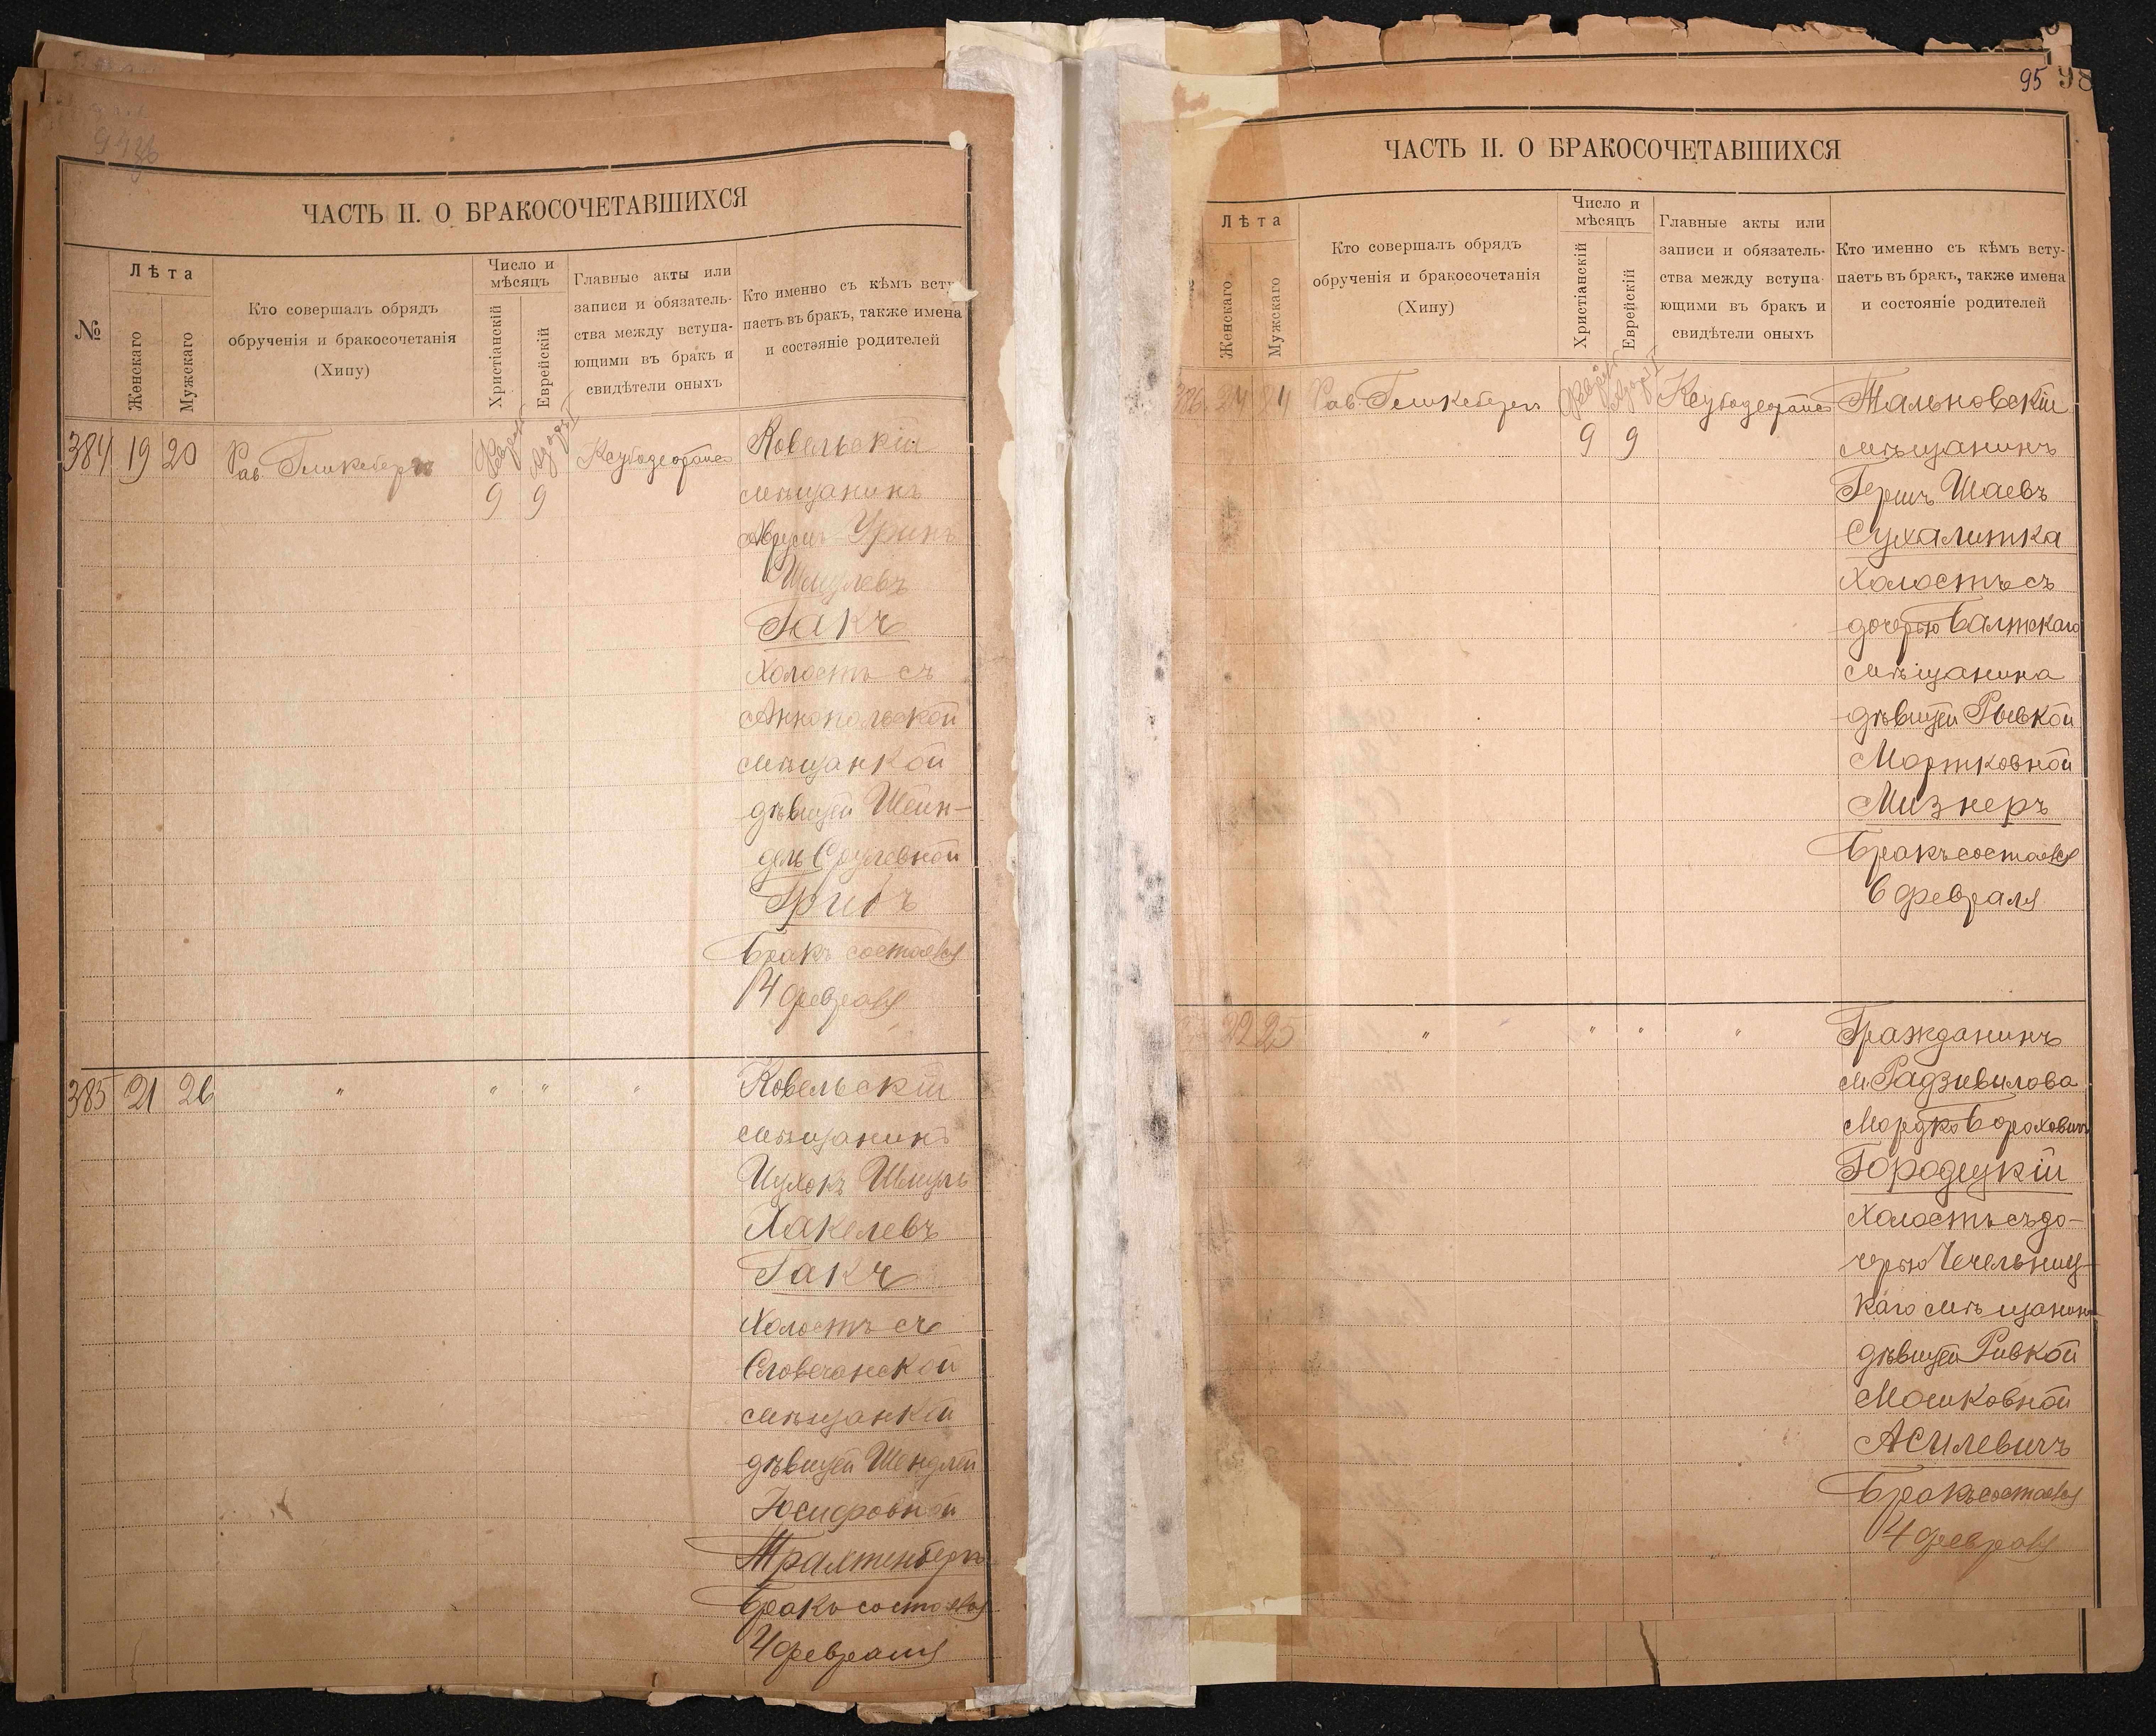 ЧАСТЬ II. О БРАКОСОЧЕТАВШИХСЯ
№
Лѣта
Женскаго
Мужскаго
Кто совершалъ обрядъ
обрученія и бракосочетанія
(Хипу)
Число и
мѣсяцъ
Христіанскій
Еврейскій
Главные акты или
записи и обязатель-
ства между вступа-
ющими въ бракъ и
свидѣтели оныхъ
Кто именно съ кѣмъ всту-
паетъ въ бракъ, также имена
и состояніе родителей
384 19 20 Рав. Гликсбергъ
9 9
Ковельскій
мѣщанинъ
Аврумъ
Шмулевъ
Гакъ
Холостъ съ
Аннопольской
мѣщанкой
дѣвицей Шейн-
дель Сруlевной
Грибъ
Бракъ состоялся
14 февраля
385 21 26 " " " "
Ковельскій
мѣщанинъ
Ицхокъ Шмуль
Хакелевъ
Гакъ
Холостъ съ
Словечанской
мѣщанкой
дѣвицей Шендлей
Юсифовной
Трахтенбергъ
Бракъ состоялся
4 февраля
95 98
ЧАСТЬ II. О БРАКОСОЧЕТАВШИХСЯ
Лѣта
Женскаго
Мужскаго
Кто совершалъ обрядъ
обрученія и бракосочетанія
(Хипу)
Число и
мѣсяцъ
Христіанскій
Еврейскій
Главные акты или
записи и обязатель-
ства между вступа-
ющими въ бракъ и
свидѣтели оныхъ
Кто именно съ кѣмъ всту-
паетъ въ бракъ, также имена
и состояніе родителей
386 24 24 Рав. Гликсбергъ
9 9
Тальновскій
мѣщанинъ
Гершъ Шаевъ
Сухалитка
Холостъ съ
дочерью Балтскаго
мѣщанина
дѣвицей Рывкой
Мортковной
Мизнеръ
Бракъ состоялся
6 февраля
22 25 " " " "
Гражданинъ
м. Радзивилова
Мордко Бороховичъ
Городецкій
Холостъ съ до-
черью Чечельниц-
каго мѣщанина
дѣвицей Ривкой
Мошковной
Асилевичъ
Бракъ состоялся
4 февраля